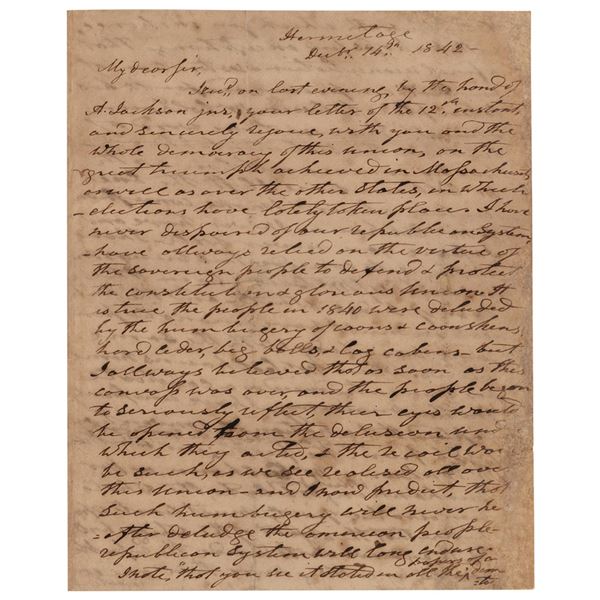 Hermitage
Decbr. 14th. 1842—
My dear Sir,
Recd. on last evening, by the hand of
A. Jackson jnr, your letter of the 12th instant,
and sincerely rejoice, with you and the
whole democracy of this union, on the
great triumph achieved in Massachusetts
as well as over the other States, in which
elections have lately taken place. I have
never despaired of our republican System,
have allways relied on the virtue of
the sovereign people to defend & protect
the constitution & glorious Union. It
is true the people in 1840 were deluded
by the humbugery of coons & coonskins,
hard cider, big balls, & log cabens— but
I allways believed that as soon as this
canvass was over, and the people began
to seriously reflect their eyes would
be opened from the delusion und
which they acted, & the recoil wou
be such, as we see realised all over
this Union— and I now predict, that
such humbugery will never he
=after deludge the american people—
republican System will long endure.
I note, "that you see it stated in all the papers of a dem